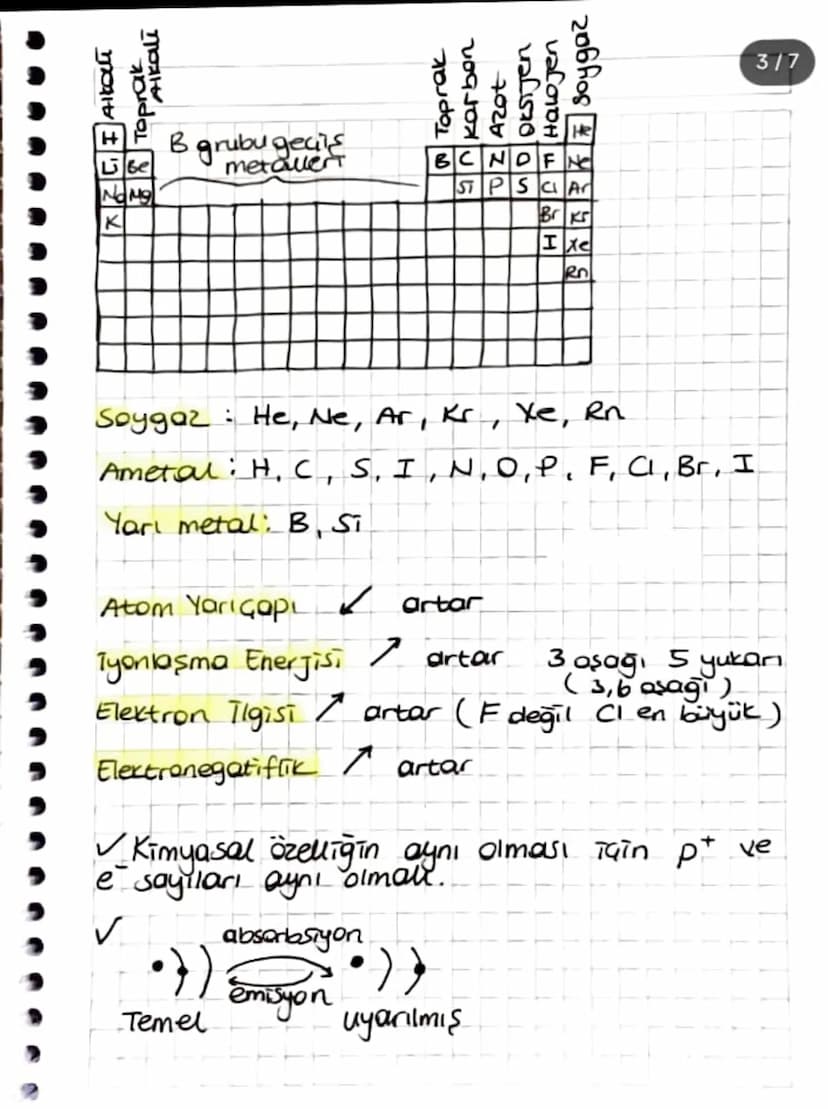 3/7
Alkali
Toprak Alkali
Toprak
Karbon
Azot
Oksijen
Halojen
Soygaz
H He
Li Be B grubu geçiş B C N O F Ne
metalleri
Na Mg Si P S Cl Ar
K Br Kr
I Xe
Rn
Soygaz : He, Ne, Ar, Kr, Xe, Rn
Ametal : H, C, S, I, N, O, P, F, Cl, Br, I
Yarı metal: B, Si
Atom Yarıçapı ↙ artar
İyonlaşma Enerjisi ↗ artar 3 aşağı 5 yukarı
(3,6 aşağı)
Elektron İlgisi ↗ artar (F değil Cl en büyük)
Elektronegatiflik ↗ artar
✓ Kimyasal özelliğin aynı olması için p⁺ ve
e⁻ sayıları aynı olmalı.
✓ absorbsiyon
emisyon
Temel uyarılmış